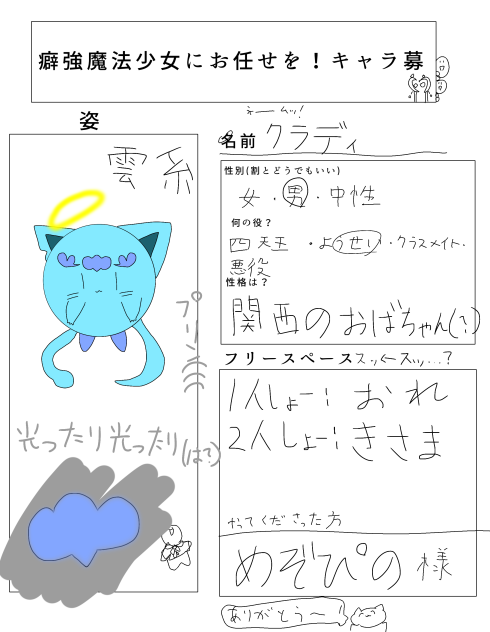 癖強魔法少女にお任せを！キャラ募
姿
雲系
プリン
光ったり光ったり(は?)
ネームッ!
名前 クラディ
性別(割とどうでもいい)
女・男・中性
何の役？
四天王・ようせい・クラスメイト・
悪役
性格は？
関西のおばちゃん(?)
フリースペーススッペースッ…?
1人しょー: おれ
2人しょー: きさま
やってくださった方
めぞぴの様
ありがとう〜!